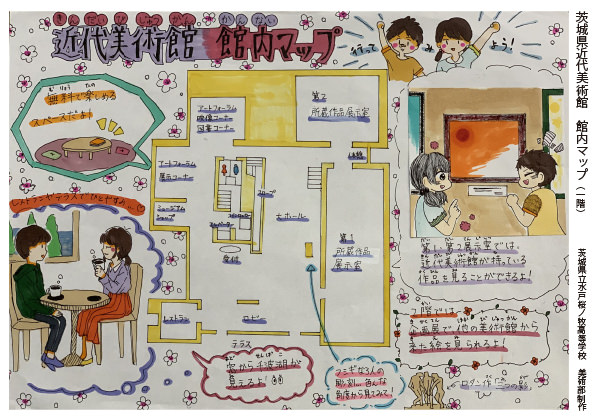 きんだいびじゅつかん かんない
近代美術館 館内マップ
行って み よう!
むりょう たの
無料で楽しめる
スペースだよ!
アートフォーラム
映像コーナー
図書コーナー
第2
所蔵作品展示室
アートフォーラム
展示コーナー
ミュージアム
ショップ
スロープ
大ホール
受付
第1
所蔵作品
展示室
レストランやテラスでひとやすみ…
レストラン
ロビー
テラス
窓から千波湖が
見えるよ!
フシギな3人の
彫刻…。色んな
角度から見てみて!
第1、第2展示室では、
近代美術館が持っている
作品を見ることができるよ!
2階では、
企画展で他の美術館から
きた絵を見られるよ!
ロダン作「三つの影」
茨城県近代美術館 館内マップ(一階)
茨城県立水戸桜ノ牧高等学校 美術部制作